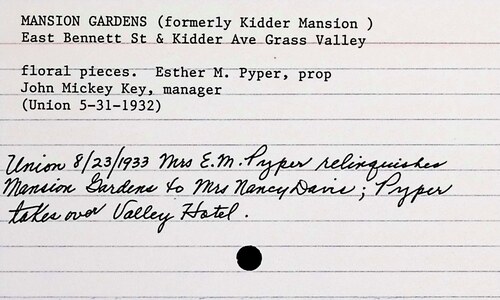 MANSION GARDENS (formerly Kidder Mansion )
East Bennett St & Kidder Ave Grass Valley
floral pieces. Esther M. Pyper, prop
John Mickey Key, manager
(Union 5-31-1932)
Union 8/23/1933 Mrs E.M. Pyper relinquishes
Mansion Gardens to Mrs Nancy Davis; Pyper
takes over Valley Hotel.